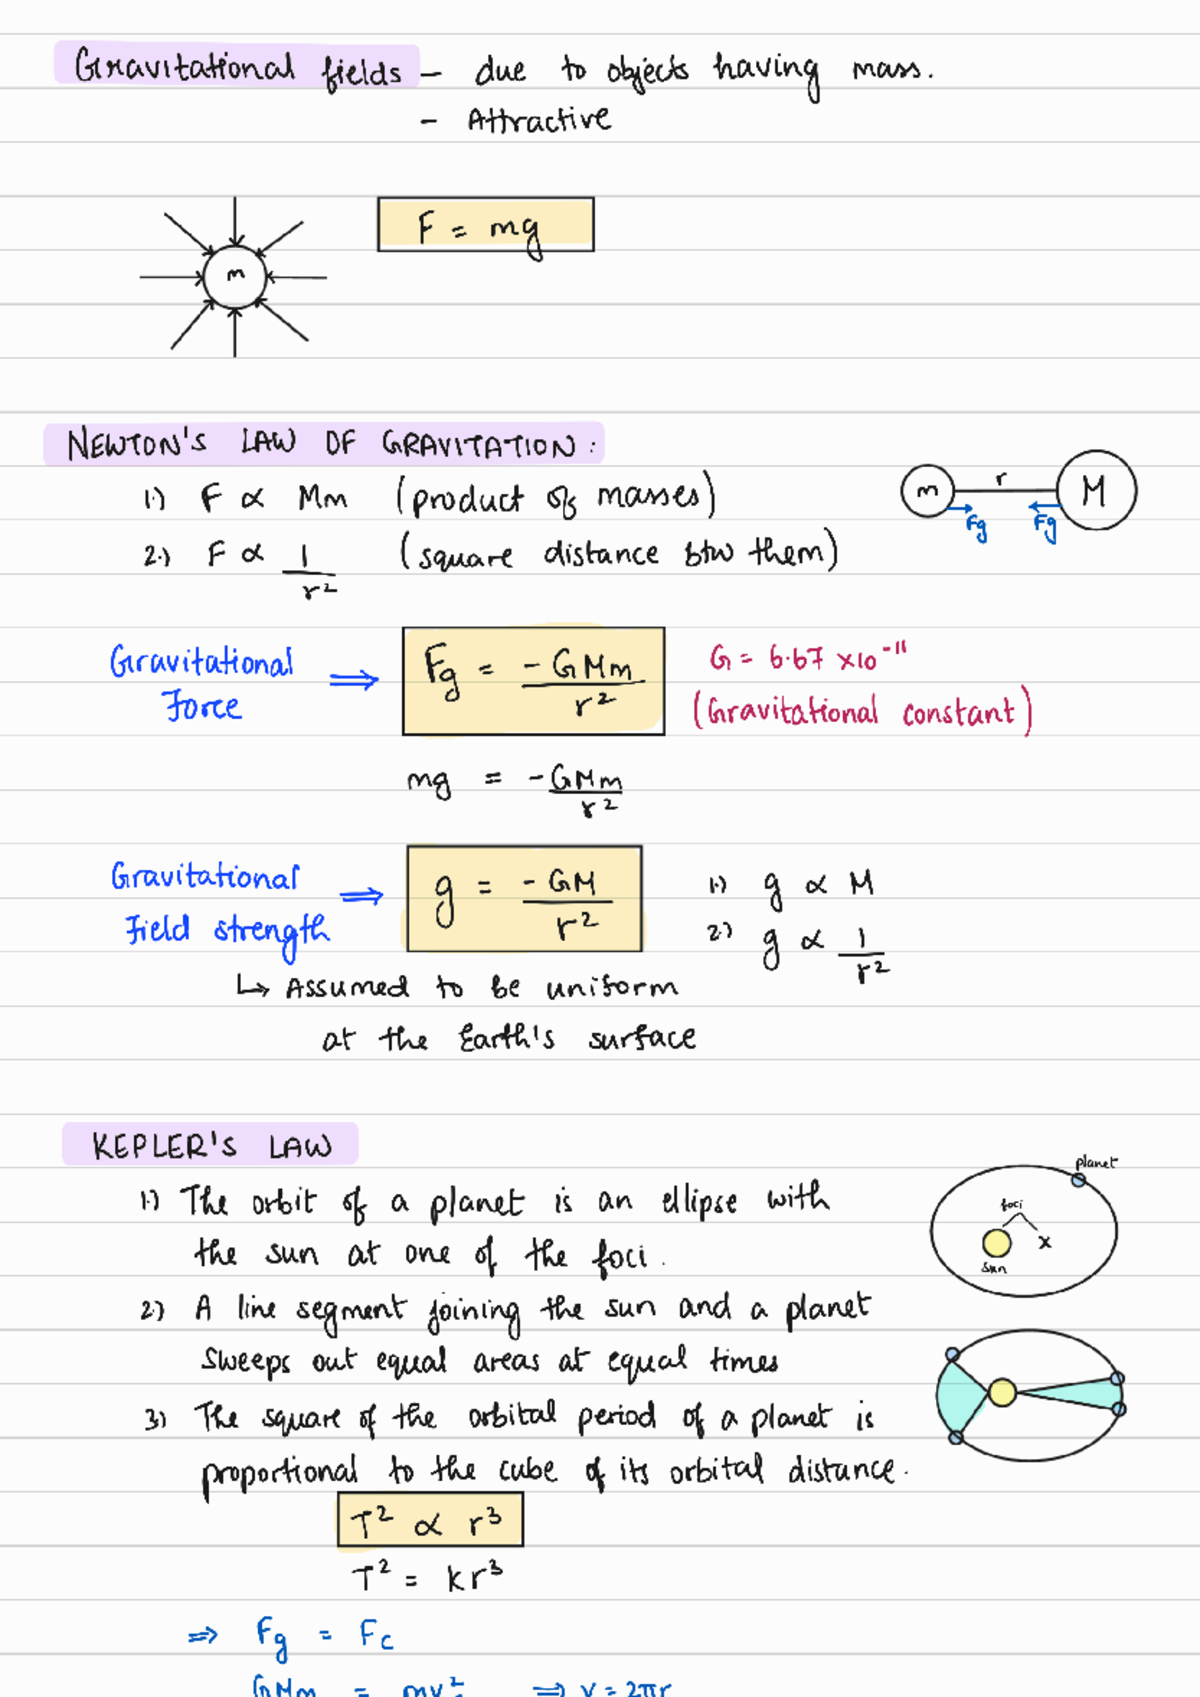 Gravitational fields – due to objects having mass.
- Attractive
m
F = mg
NEWTON'S LAW OF GRAVITATION:
1.) F ∝ Mm (product of masses)
m r M
Fg Fg
2.) F ∝ 1/r² (square distance btw them)
Gravitational Force ⇒ Fg = -GMm/r²
G = 6.67 ×10⁻¹¹
(Gravitational constant)
mg = -GMm/r²
Gravitational Field strength ⇒ g = -GM/r²
1.) g ∝ M
2.) g ∝ 1/r²
↳ Assumed to be uniform
at the Earth's surface
KEPLER'S LAW
planet
foci
x
sun
1.) The orbit of a planet is an ellipse with
the sun at one of the foci.
2.) A line segment joining the sun and a planet
sweeps out equal areas at equal times
3.) The square of the orbital period of a planet is
proportional to the cube of its orbital distance.
T² ∝ r³
T² = kr³
⇒ Fg = Fc
GMm = mv² ⇒ v = 2πr